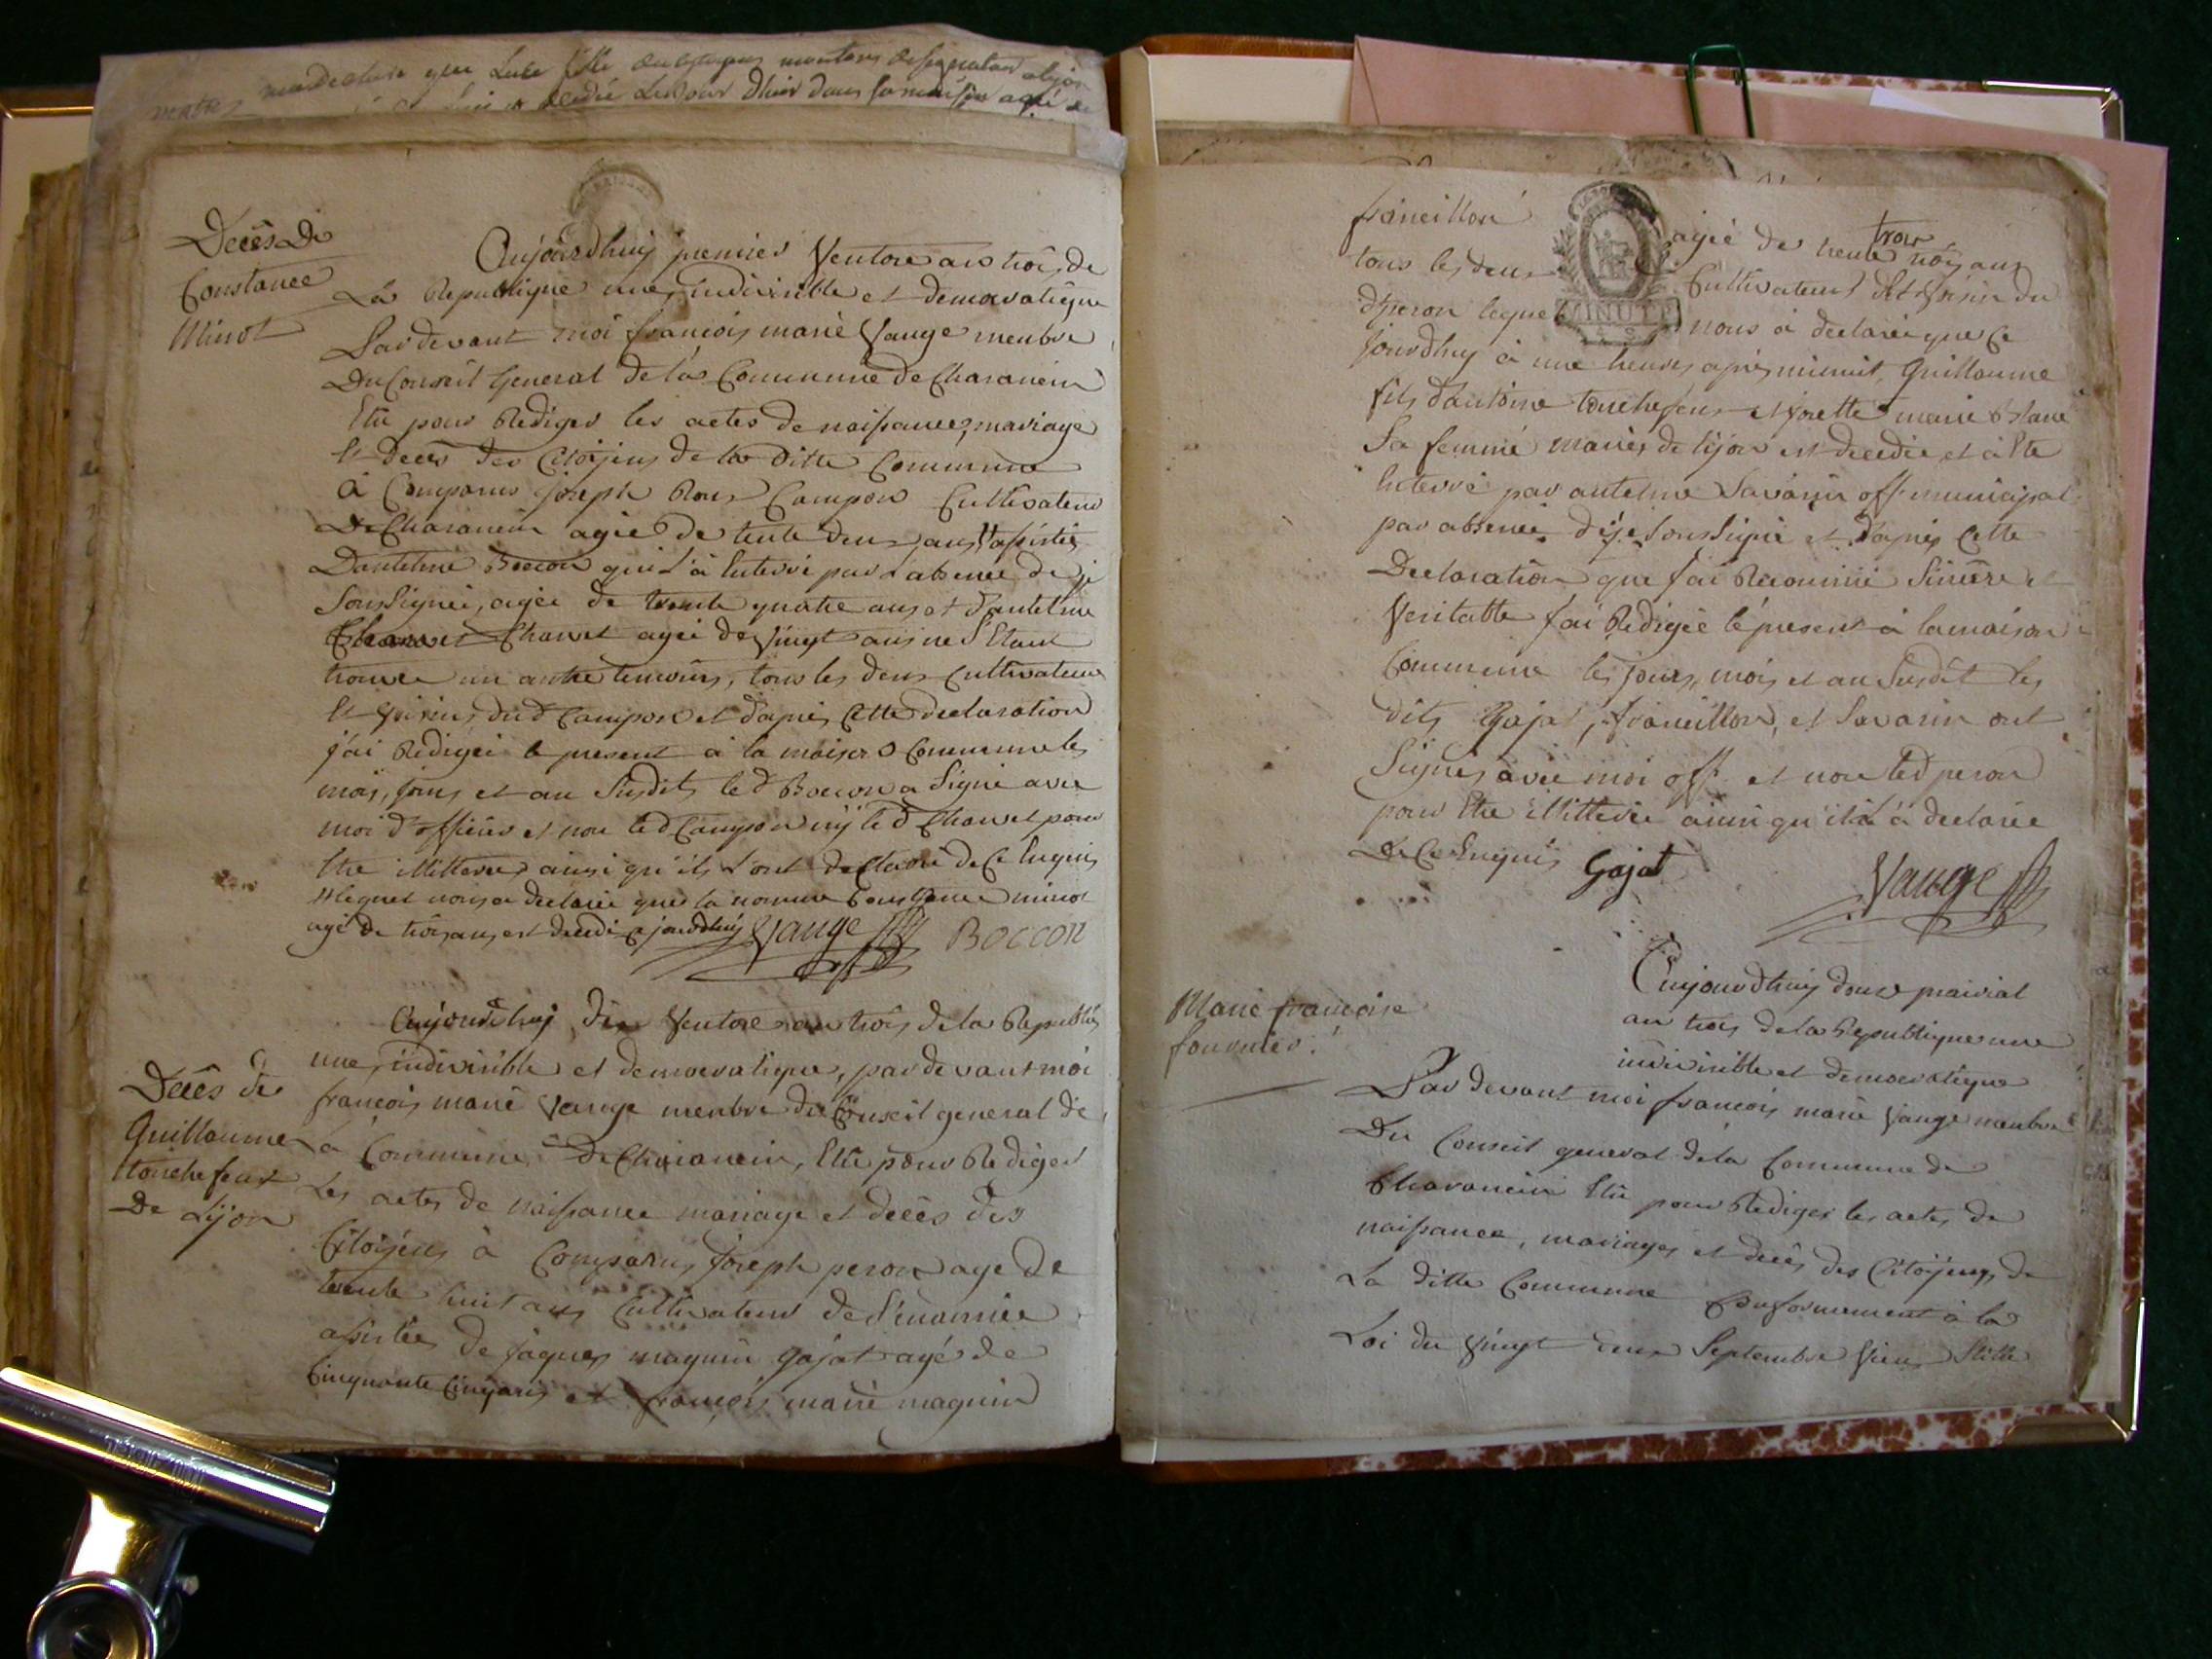 Decès De
Constance
Minot
Aujourdhuy premier Ventose an trois de
La Republique une, indivisible et democratique
Pardevant moi françois marie Vauge menbre
Du Conseil General de la Commune de Charancin
Elû pour Rediger les actes de naissance, mariage
Et decès des Citoijens de la Ditte Commune
à Comparus joseph Roux Campon Cultivateur
De Charancin agée de trente deux ans assistée
Dantelme Boccon qui l'à Enterré par l'absence de je
Soussignée, agée de trente quatre ans et d'antelme
Chavet agée de Vingt ans ne S'Etant
trouvée un autre temoins, tous les deux Cultivateurs
Et Voisins dud Campon et d'après Cette declaration
j'ai Redigée le present à la maison Commune les
mois, jours et an Susdits led Boccon a Signé avec
moi d' officier et non led Campon nij led Chavet pour
Etre illitterés ainsi qu'ils l'ont declaré de Ce Enquis
lequel nous a declarée que la nommé Constance minot
agé de trois ans est decedé Ce jourdhuij Vauge Boccon
Decès de
Guillaume
touchefeux
De Lijon
Aujourdhuij dix Ventose an trois de la Republiq
une, indivisible et democratique, pardevant moi
françois marie Vauge menbre du Conseil general de
la Commune De Charancin, Elû pour Rediger
Les actes de naissance mariage et decès des
Citoijens à Comparus joseph peron age de
trente huit ans Cultivateur de
assistée de jaques magnin Gajat agé de
Cinquante Cinq ans et françois marie magnin
franeillon agée de trente trois ans
tous les deux Cultivateurs Et Voisin du
d peron lequel nous à declarée que Ce
jourdhuy à une heures après minuit, Guillaume
fils dantoine touchefeux et josette marie
Sa femme mariés de lijon est decedée et à Ete
Enterré par antelme Savarin off municipal
par absence de je Soussigné et d'après Cette
Declaration que jai Reconnüe Sincère et
Veritable jai Redigée le present à la maison
Commune les jours, mois et an Susdit les
dits Gajat, franeillon, et Savarin ont
Signés avec moi off et non led peron
pour Etre illitterée ainsi qu'il à declarée
De Ce Enquis Gajat
Vauge
Marie françoise
fournier
Aujourdhuij douze prairial
an trois de la Republique une
indivisible et democratique
Par devant moi françois marie Vauge menbre
Du Conseil general de la Commune de
Charancin Elû pour Rediger les actes de
naissance, mariages et decès des Citoijens de
La ditte Commune Conformement à la
Loi du Vingt deux Septembre Vieux Stille
MINUTE